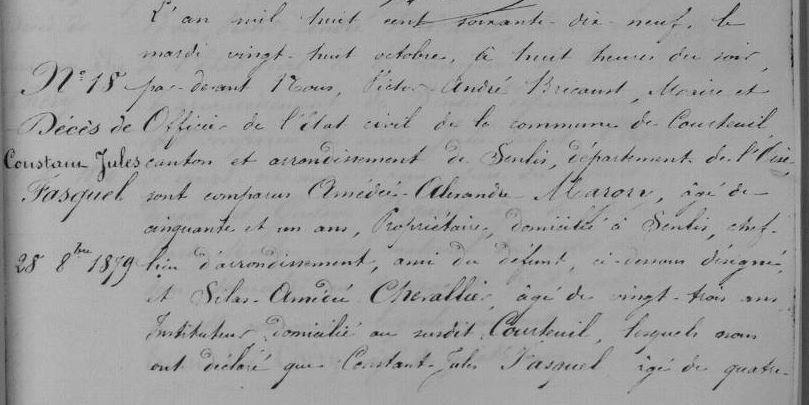 L'an mil huit cent soixante-dix-neuf, le
mardi vingt-huit octobre, à huit heures du soir,
N° 18 par-devant Nous, Victor-André Bricaust, Maire et
Décès de Officier de l'état civil de la commune de Courteuil,
Constant Jules canton et arrondissement de Senlis, département de l'Oise,
Fasquel sont comparus Amédée-Alexandre Margry, âgé de
cinquante et un ans, Propriétaire, domicilié à Senlis, chef-
28 8bre 1879 lieu d'arrondissement, ami du défunt, ci-dessous désigné,
et Silas-Amédée Chevallier, âgé de vingt-trois ans
Instituteur domicilié au susdit Courteuil, lesquels nous
ont déclaré que Constant-Jules Fasquel âgé de quatre-